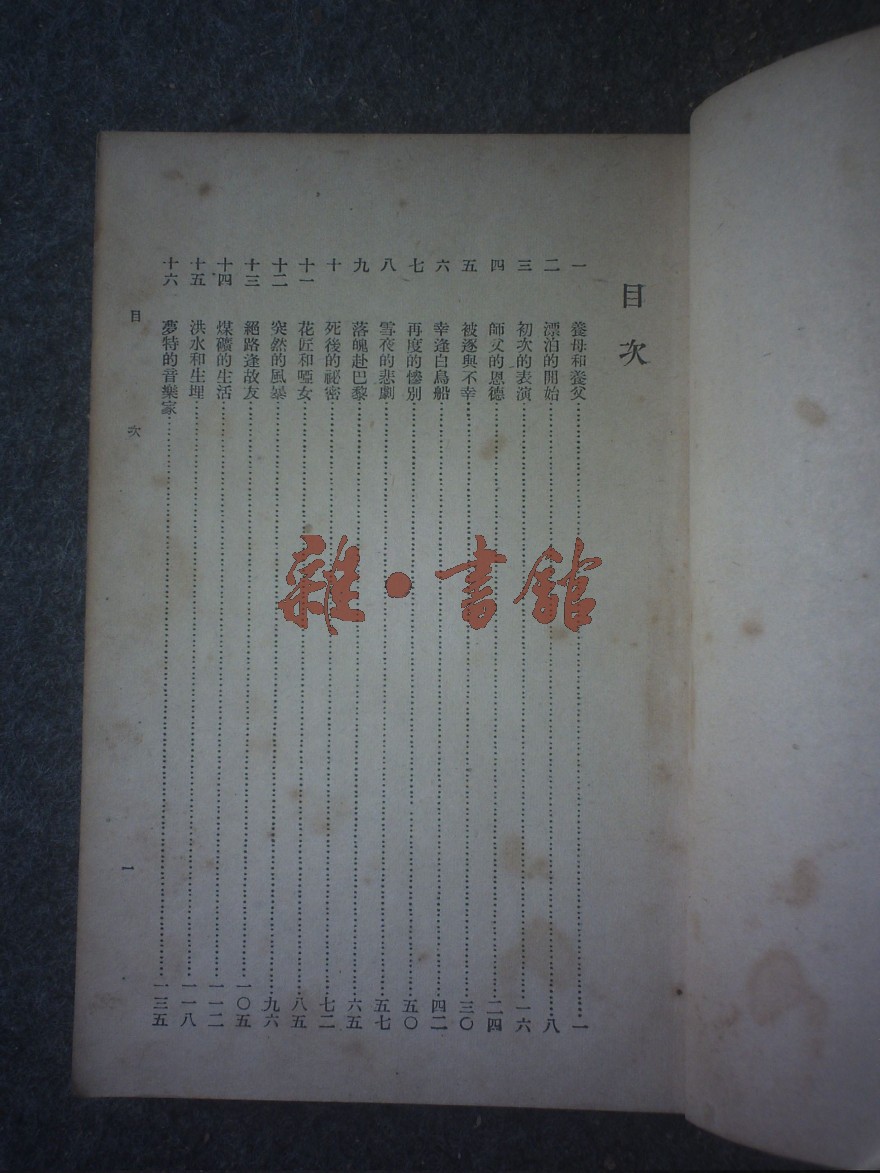 目次
一 養母和養父…………一
二 漂泊的開始…………八
三 初次的表演…………一六
四 師父的恩德…………二四
五 被逐與不幸…………三〇
六 幸逢白鳥船…………四二
七 再度的慘別…………五〇
八 雪夜的悲劇…………五七
九 落魄赴巴黎…………六五
十 死後的祕密…………七二
十一 花匠和啞女…………八五
十二 突然的風暴…………九六
十三 絕路逢故友…………一〇五
十四 煤礦的生活…………一一二
十五 洪水和生埋…………一一八
十六 夢特的音樂家…………一三五
目次 一
雜·書館